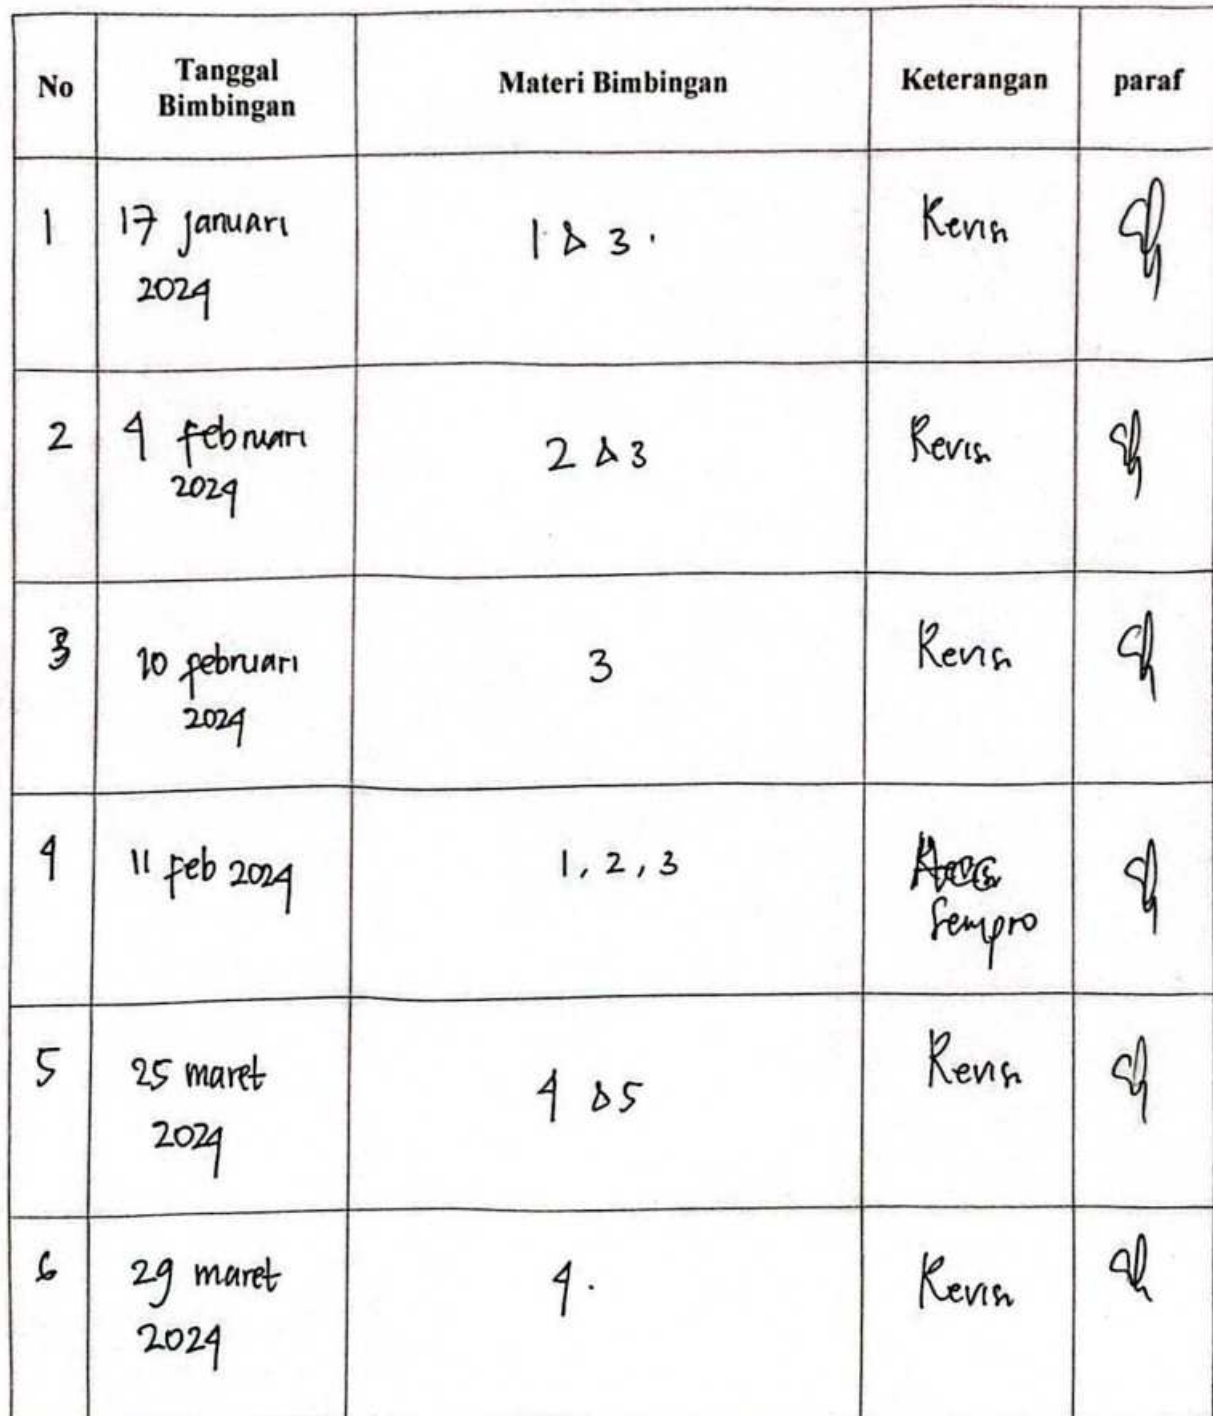 No Tanggal Bimbingan Materi Bimbingan Keterangan paraf
1 17 januari 2024 1 & 3. Revisi
2 4 februari 2024 2 & 3 Revisi
3 10 februari 2024 3 Revisi
4 11 feb 2024 1, 2, 3 Acc Sempro
5 25 maret 2024 4 & 5 Revisi
6 29 maret 2024 4. Revisi